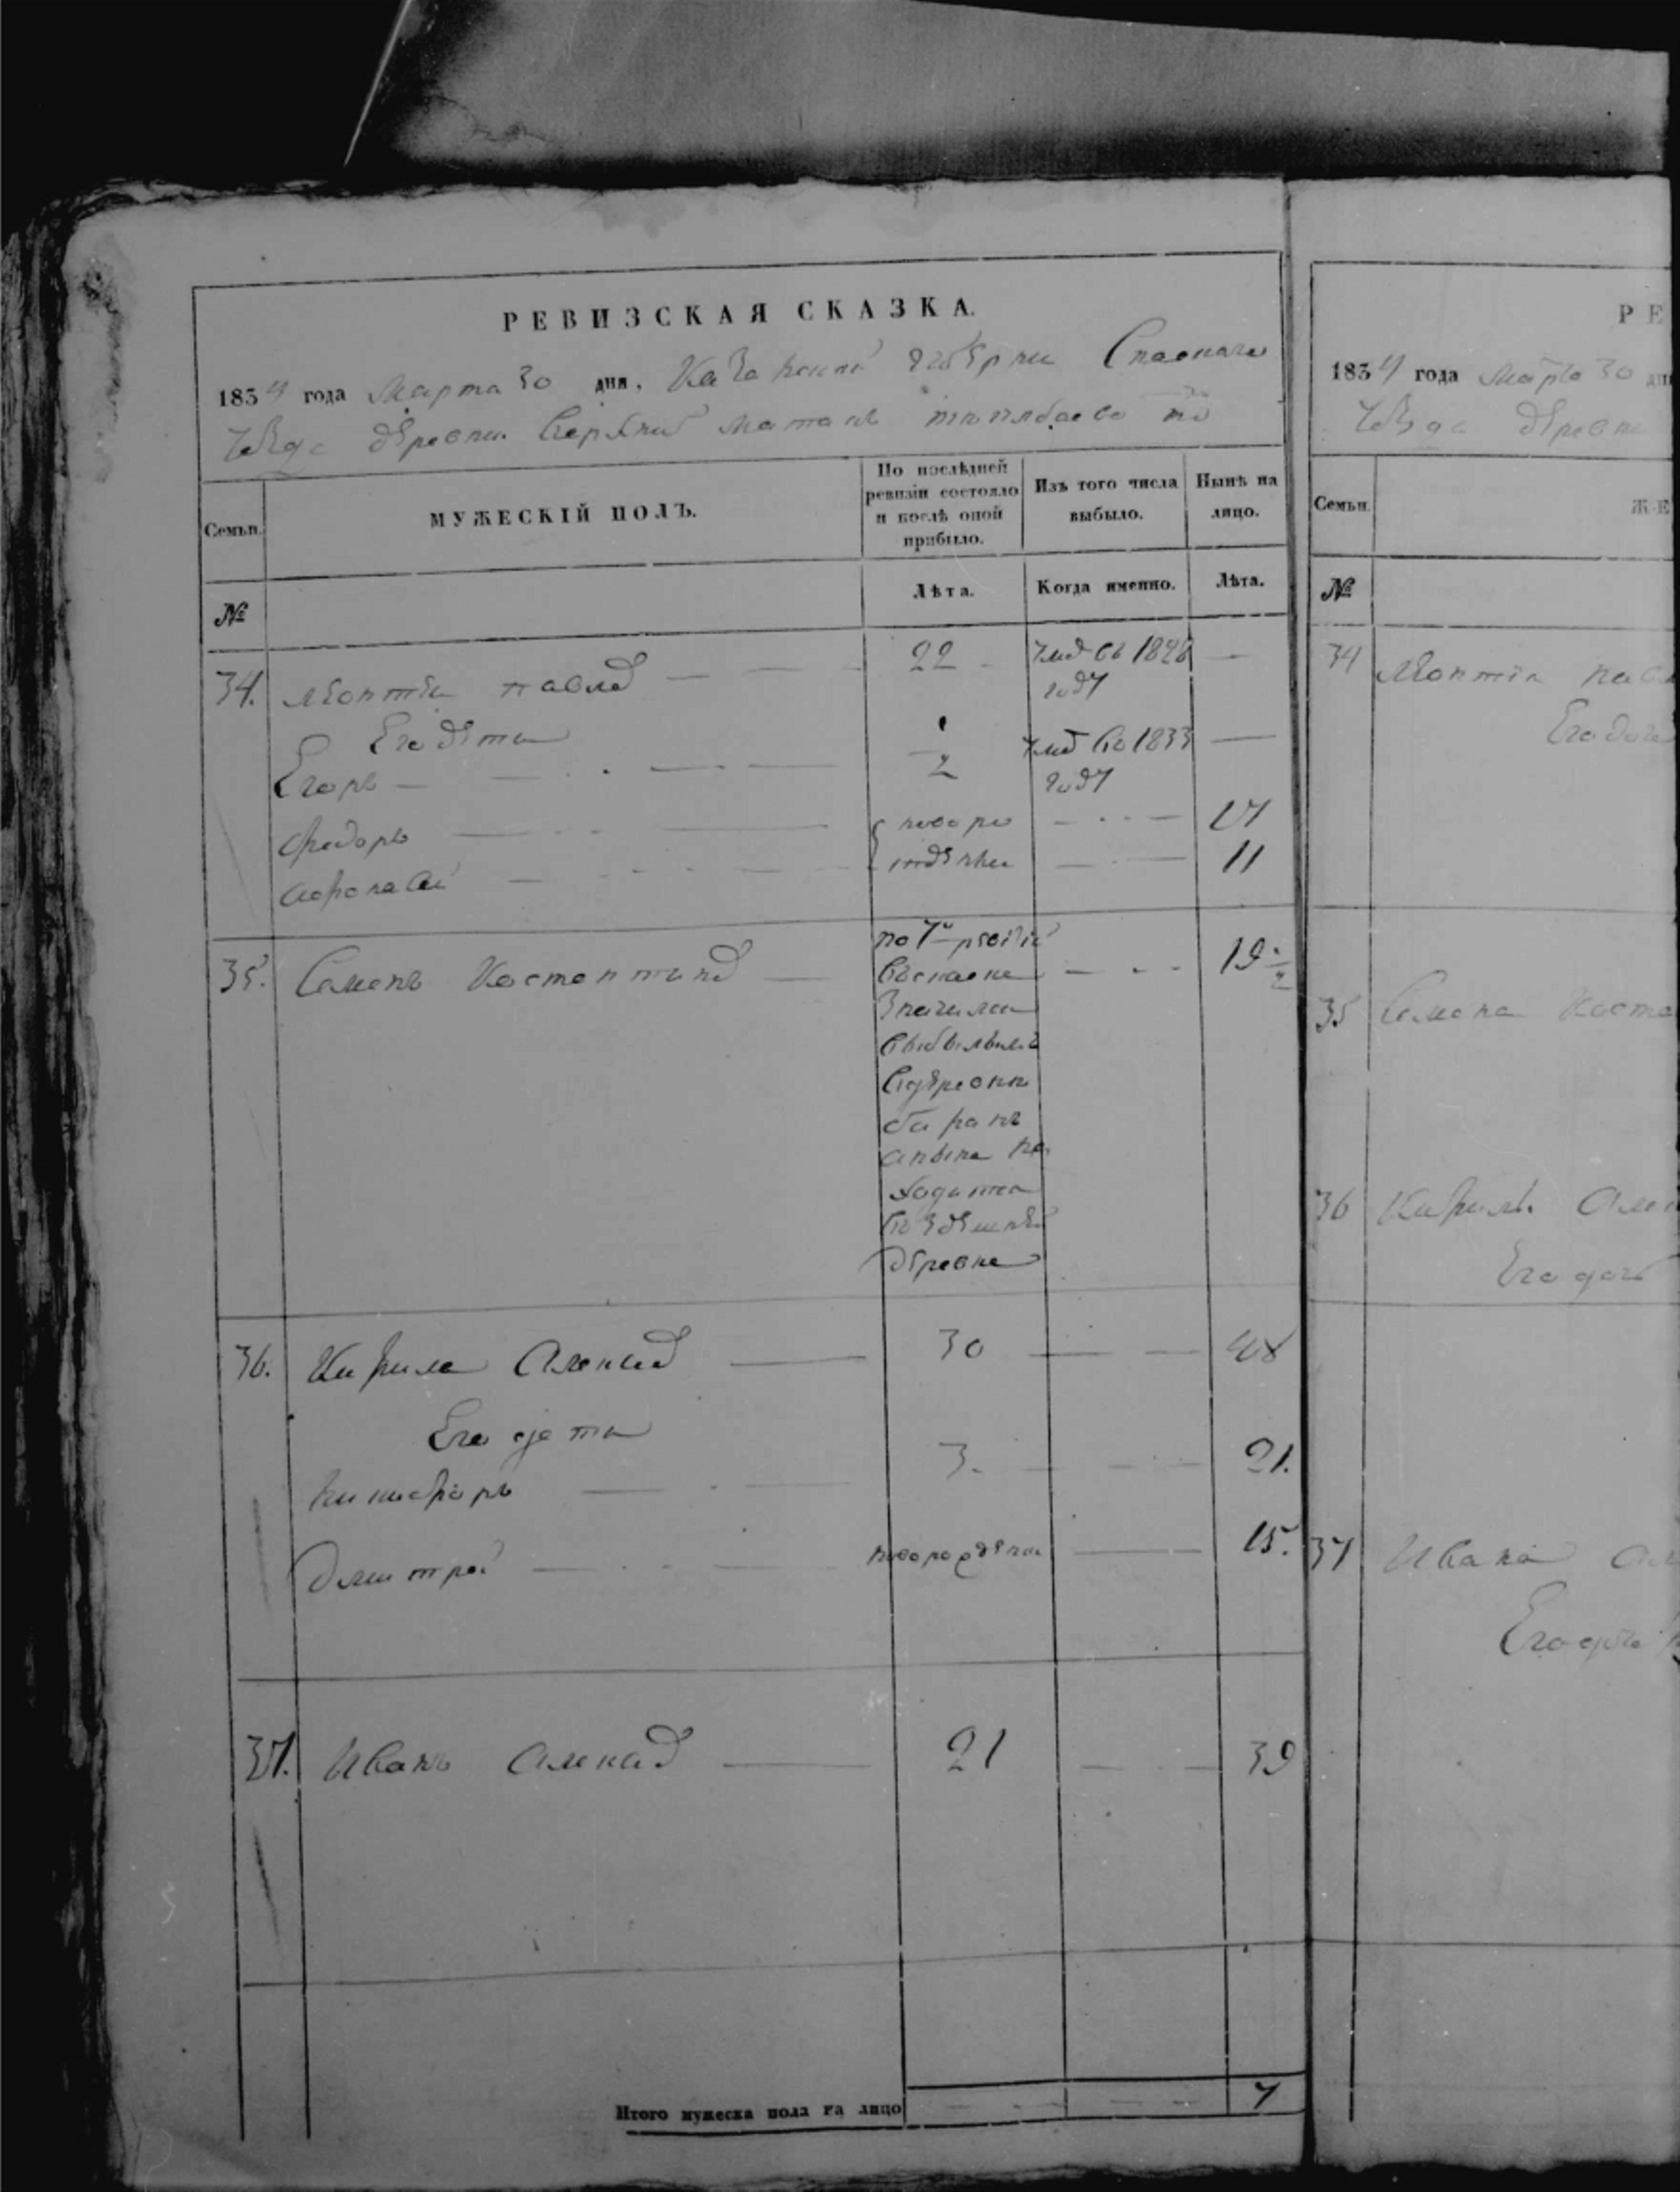 РЕВИЗСКАЯ СКАЗКА.
1834 года Марта 30 дня, Казанской губерни Спаскаго
уезда деревни Верхний матакъ тожъ
Семьи.
МУЖЕСКІЙ ПОЛЪ.
По послѣдней ревизіи состояло и послѣ оной прибыло.
Изъ того числа выбыло.
Нынѣ на лицо.
№
Лѣта.
Когда именно.
Лѣта.
34. Леонтѣи павлов — 22 — умер въ 1828 году —
Его дѣти
Егоръ — 1/2 умер во 1833 году —
Федоръ — новоро — 17
Афонасей — жденны — 11
35. Семенъ Костентинов — по 7й ревизiи — 19 1/2
въ скаске
значился
выбылымъ
въ деревни
баранъ
а ныне на
ходитца
въ здешней
деревне
36. Кирила Алексеев — 30 — 48
Его дети
Никифоръ — 3. — 21.
Дмитрей — новорожденной — 15.
37. Иванъ Алексеев — 21 — 39
Итого мужеска пола на лицо — 7
РЕ
1834 года Марта 30 дня
Уезда деревни
Семьи.
Ж Е
№
34 Леонтѣя Пав
Его доче
35 Семена Коste
36 Кирилы Алек
Его доч
37 Ивана Ал
Его дочь